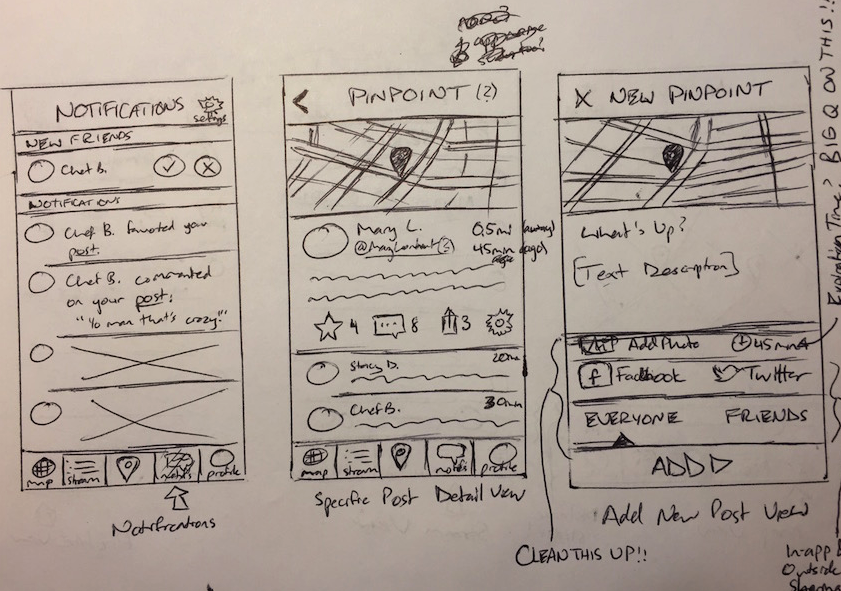 NOTIFICATIONS
settings
NEW FRIENDS
Chef B.
NOTIFICATIONS
Chef B. favorited your
post.
Chef B. commented
on your post:
"Yo man that's crazy!"
map
stream
notifs
profile
Notifications
PINPOINT (?)
Mary L.
0.5mi (away)
45min (ago)
4
8
3
Stacy D.
20m
Chef B.
30m
map
stream
notifs
profile
Specific Post Detail View
X NEW PINPOINT
What's Up?
[Text Description]
Add Photo
45min
f Facebook
Twitter
EVERYONE
FRIENDS
ADD
Add New Post View
CLEAN THIS UP!!
Expiration Time? BIG Q ON THIS!!
In-app
Outside